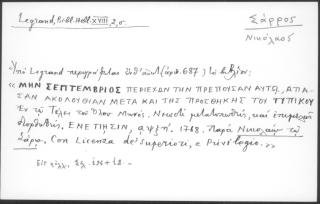 Legrand, Bibl. Hell. XVIII 2,0.
Σάρρος
Νικόλαος
Ὑπὸ Legrand περιγράφεται (ἀριθ. 687) τὸ βιβλίον:
« ΜΗΝ ΣΕΠΤΕΜΒΡΙΟΣ ΠΕΡΙΕΧΩΝ ΤΗΝ ΠΡΕΠΟΥΣΑΝ ΑΥΤΩ, ΑΠΑ-
ΣΑΝ ΑΚΟΛΟΥΘΙΑΝ ΜΕΤΑ ΚΑΙ ΤΗΣ ΠΡΟΣΘΗΚΗΣ ΤΟΥ ΤΥΠΙΚΟΥ
Ἐν τῷ Τέλει τοῦ Ὅλου Μηνός. Νεωστὶ μετατυπωθείς, καὶ ἐπιμελῶς
διορθωθείς. ΕΝΕΤΙΗΣΙΝ, 1768. Παρὰ Νικολάῳ τῷ
Σάρῳ. Con Licenza de' superiori, e Privilegio. »
Εἰς